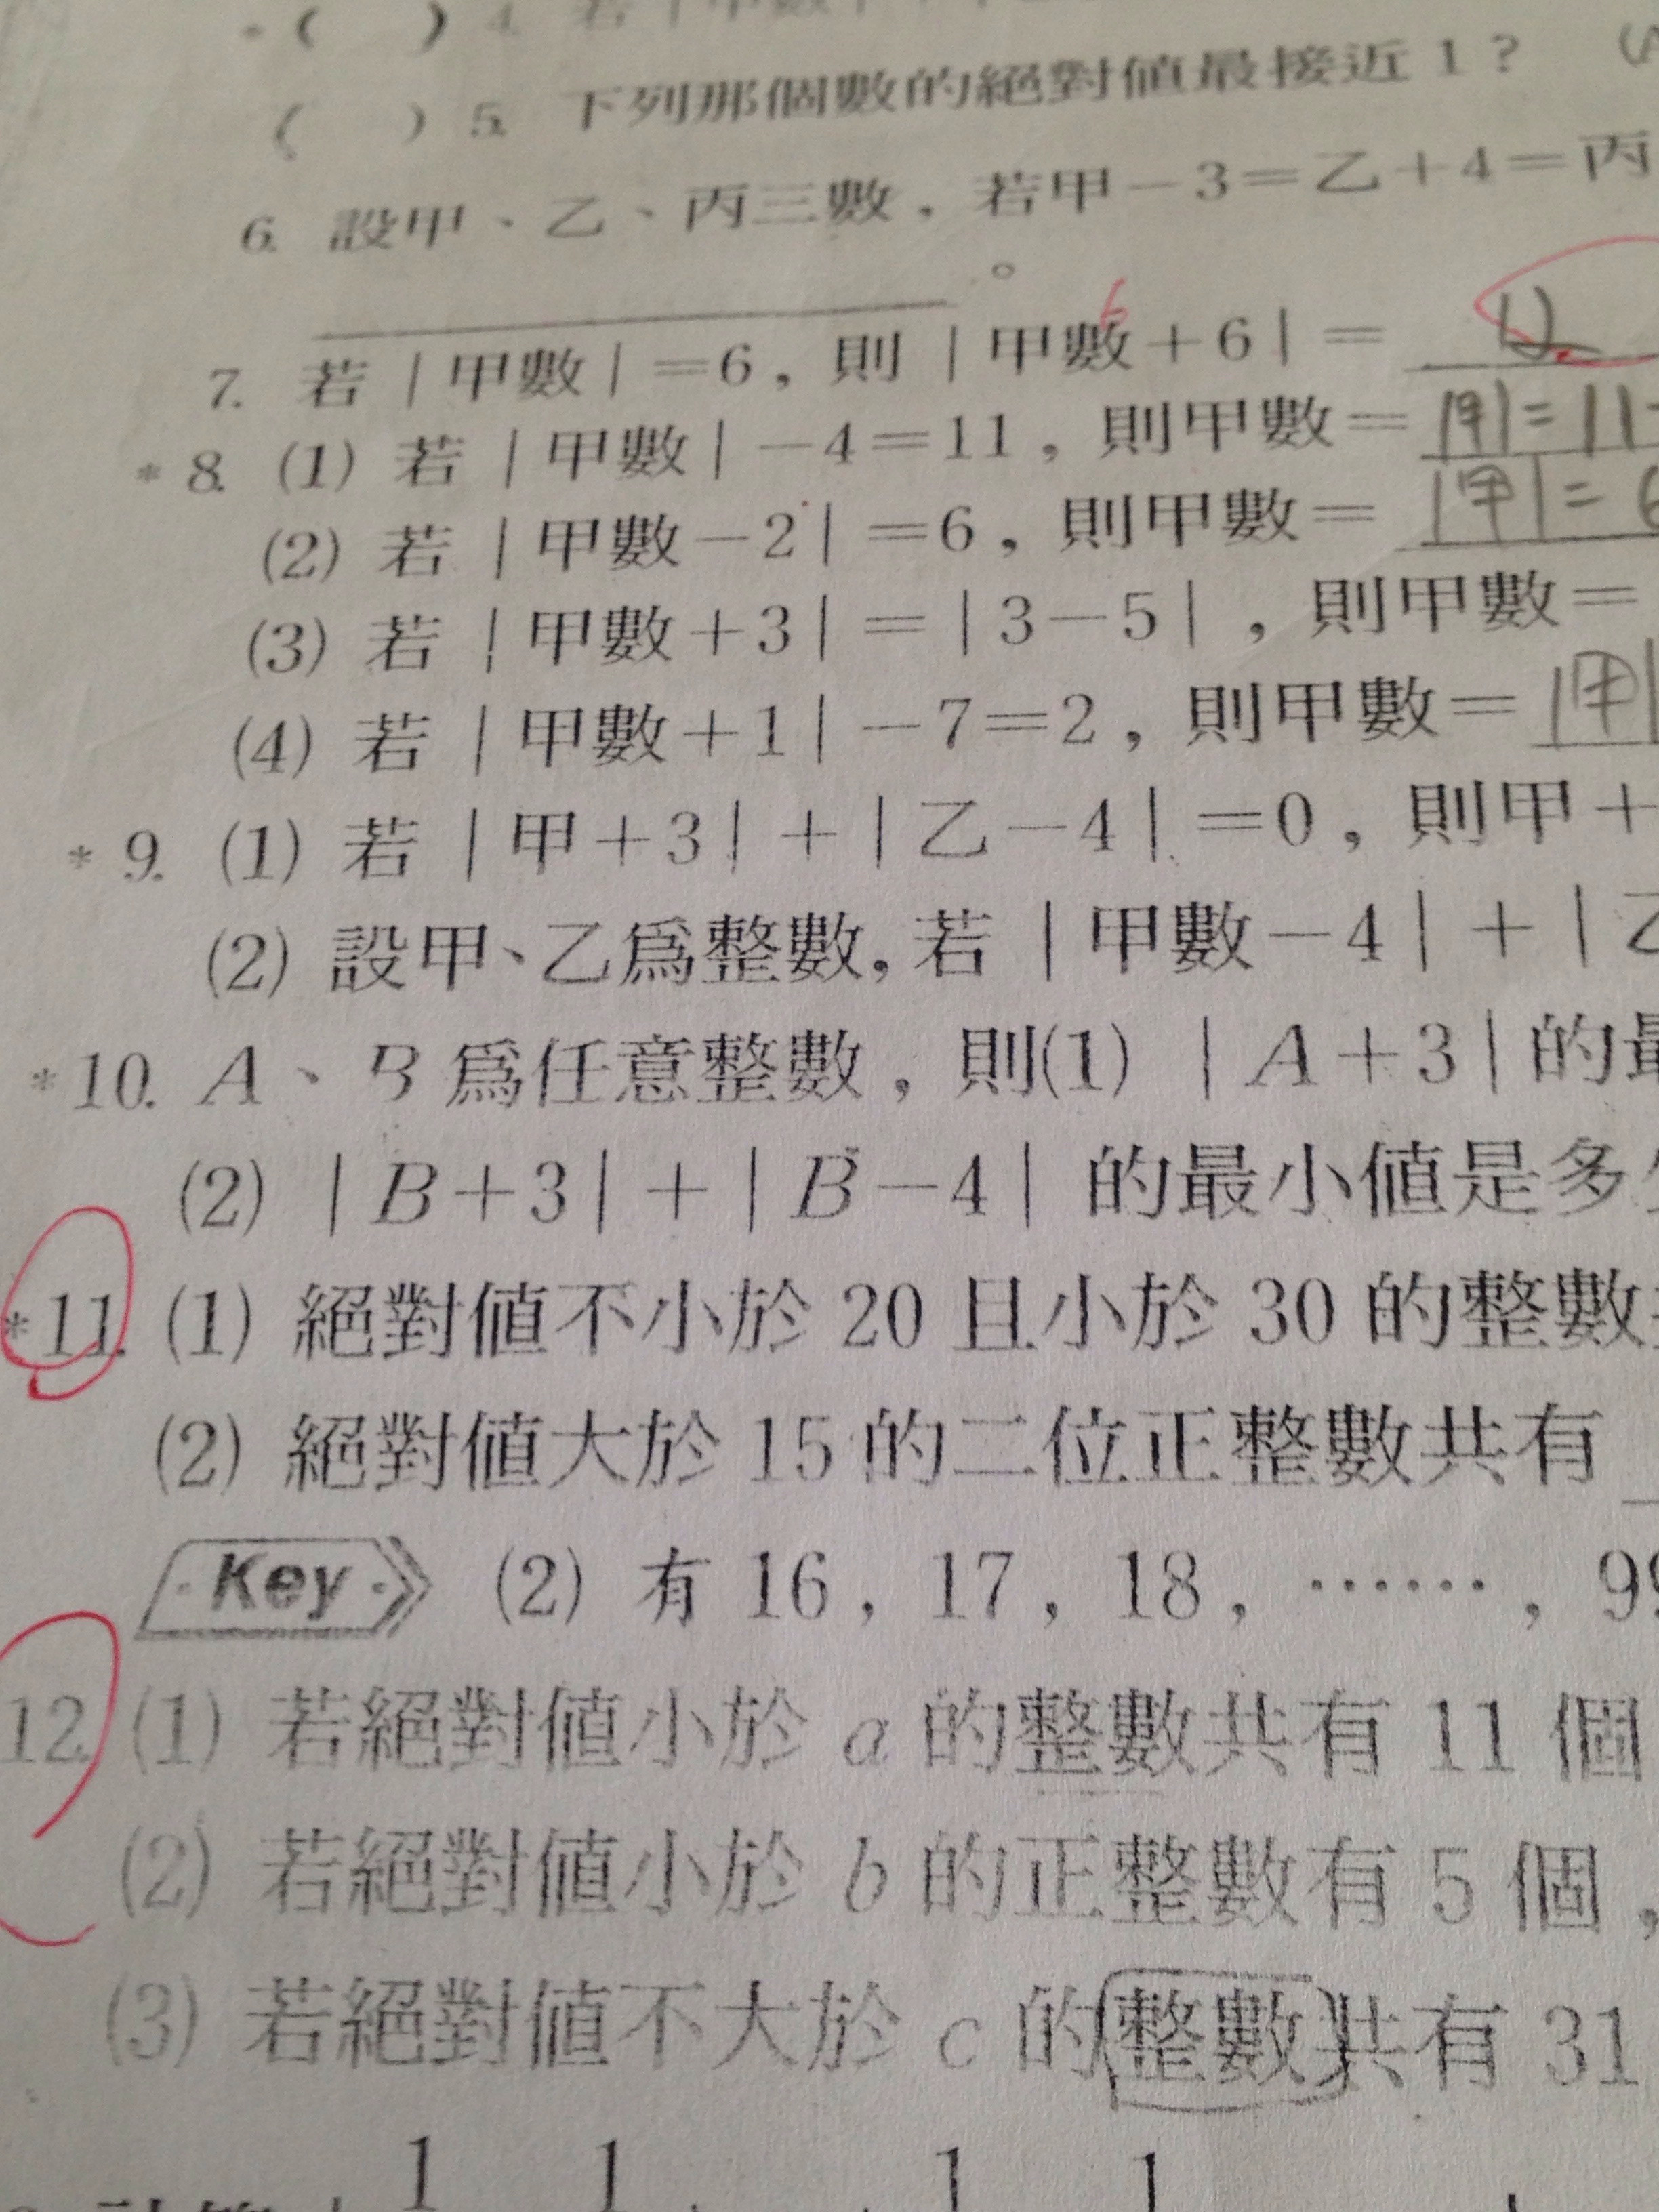 ( ) 4. 若|甲數|
( ) 5. 下列那個數的絕對値最接近1? (A
6. 設甲、乙、丙三數,若甲-3=乙+4=丙
。
7. 若|甲數|=6,則|甲數+6|= 12
6
*8. (1) 若|甲數|-4=11,則甲數= |甲|=11-
(2) 若|甲數-2|=6,則甲數= |甲|=6
(3) 若|甲數+3|=|3-5|,則甲數=
(4) 若|甲數+1|-7=2,則甲數= |甲|
*9. (1) 若|甲+3|+|乙-4|=0,則甲+
(2) 設甲、乙爲整數,若|甲數-4|+|乙
*10. A、B爲任意整數,則(1) |A+3|的最
(2) |B+3|+|B-4| 的最小値是多少
*11. (1) 絕對値不小於20且小於30的整數共
(2) 絕對値大於15的二位正整數共有
Key (2) 有16,17,18,……,99
12. (1) 若絕對値小於a的整數共有11個
(2) 若絕對値小於b的正整數有5個,
(3) 若絕對値不大於c的整數共有31
1 1 1 1